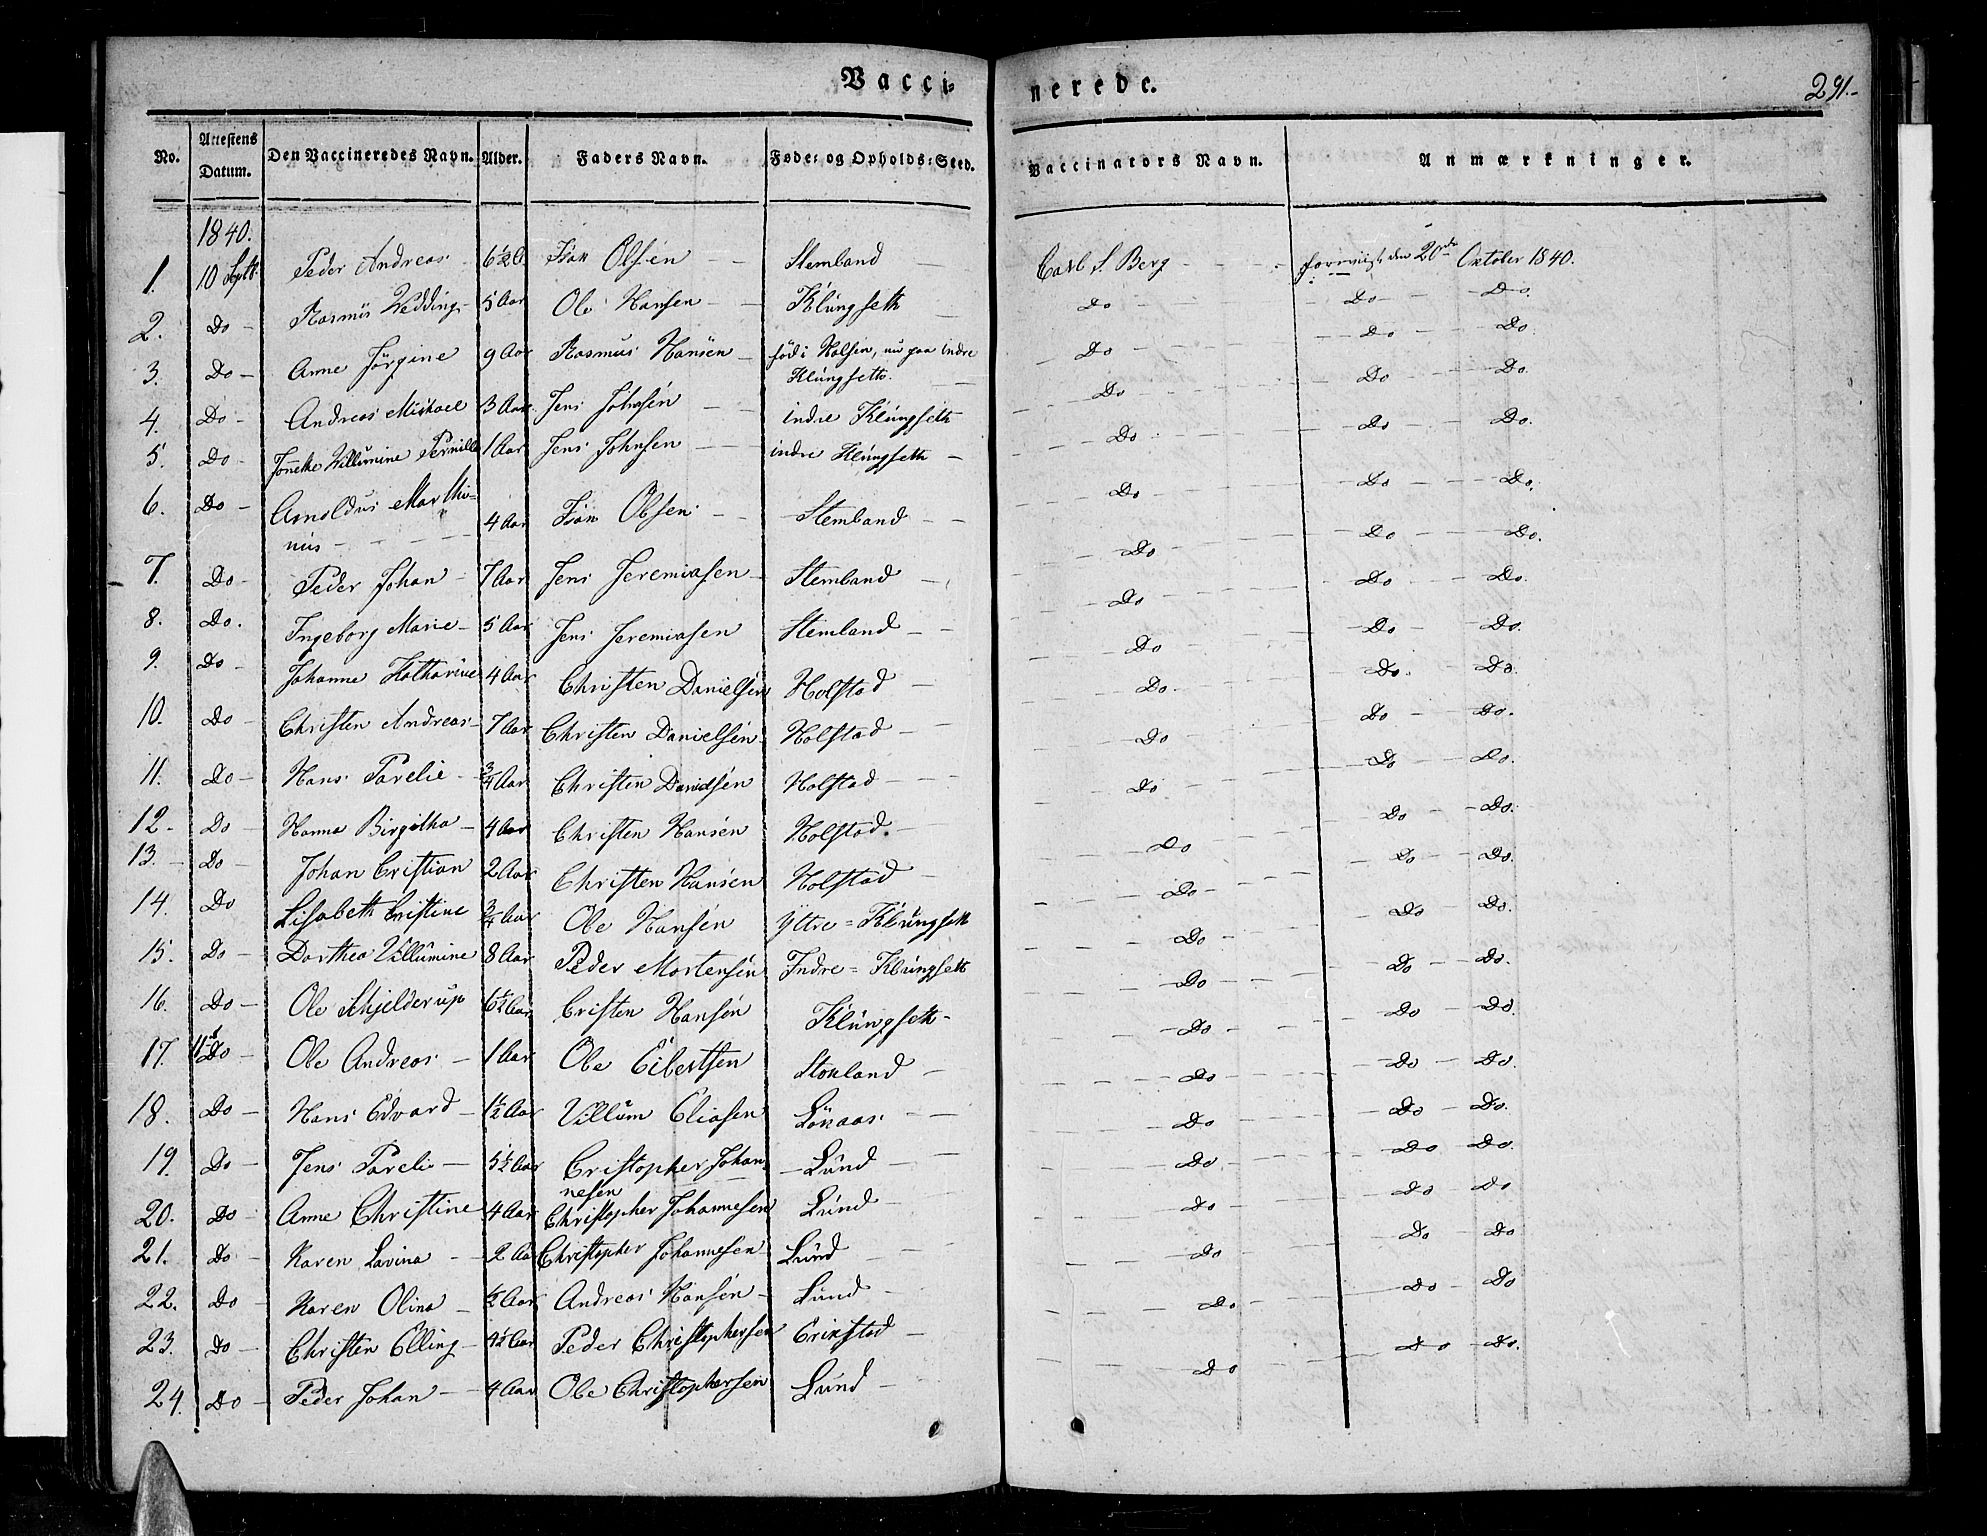 Vacci- nerede. 291.-
No. Attestens Datum. Den Vaccineredes Navn. Alder. Faders Navn. Føde- og Opholds-Sted. Vaccinators Navn. Anmærkninger.
1840.
1. 10 Septb. Peder Andreas 6½ A. Isak Olsen Stemland Carl S. Berg den 20de Oktober 1840.
2. Do Rasmus Wedding 5 Aar Ole Hansen Klüngseth Do Do Do.
3. Do Anne Jørgine 9 Aar Rasmus Hansen fød i Holsen, nu paa indre Do Do Do.
Klüngseth.
4. Do Andreas Mikael 3 Aar. Jens Johnsen indre Klüngseth Do Do Do.
5. Do Villumine Pernille 1 Aar Jens Johnsen indre Klüngseth Do Do Do.
6. Do Arnoldus Marthi-
nus 4 Aar Isak Olsen Stemland Do Do Do.
7. Do Peder Johan 7 Aar Jens Jeremiasen Stemland Do Do Do.
8. Do. Ingeborg Marie 5 Aar Jens Jeremiasen Stemland Do Do Do.
9. Do Johanne Katharine 4 Aar Christen Danielsen Holstad Do Do Do.
10. Do Christen Andreas 7 Aar Christen Danielsen Holstad Do. Do. Do.
11. Do Hans Parelie ¾ Aar Christen Davidsen Holstad Do Do Do.
12. Do Hanna Birgitha 4 Aar Christen Hansen Holstad. Do Do Do.
13. Do Johan Cristian 2 Aar Christen Hansen Holstad Do Do Do.
14. Do Lisabeth Cristine ¾ Aar Ole Hansen Yttre = Klüngseth Do Do Do.
15. Do Dorthea Villumine 8 Aar Peder Mortensen Indre = Klüngseth Do Do Do.
16. Do Ole Schjelderup 6½ Aar Cristen Hansen Klüngseth Do Do Do.
17. 11te Do Ole Andreas 1 Aar Ole Eilertsen Stokland Do Do Do.
18. Do Hans Edvard 1½ Aar Villum Eliasen Lönaas Do Do Do.
19. Do Jens Parelie 5½ Aar Cristopher Johan- Lünd Do Do Do.
nesen
20. Do Anne Christine 4 Aar Christopher Johannesen Lünd Do. Do Do.
21. Do Karen Lavina 2 Aar Christopher Johannesen Lünd Do Do Do
22. Do Karen Olina ½ Aar Andreas Hansen Lünd Do Do Do
23. Do Christen Elling 4½ Aar Peder Christophersen Erikstad Do Do Do
24. Do Peder Johan 4 Aar Ole Christophersen Lünd Do Do Do.